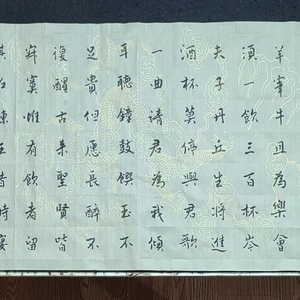 羊宰牛且為樂會
須一飲三百杯岑
夫子丹丘生將進
酒杯莫停與君歌
一曲請君為我傾
耳聽鐘鼓饌玉不
足貴但愿長醉不
復醒古來聖賢皆
寂寞惟有飲者留
其名陳王昔時宴